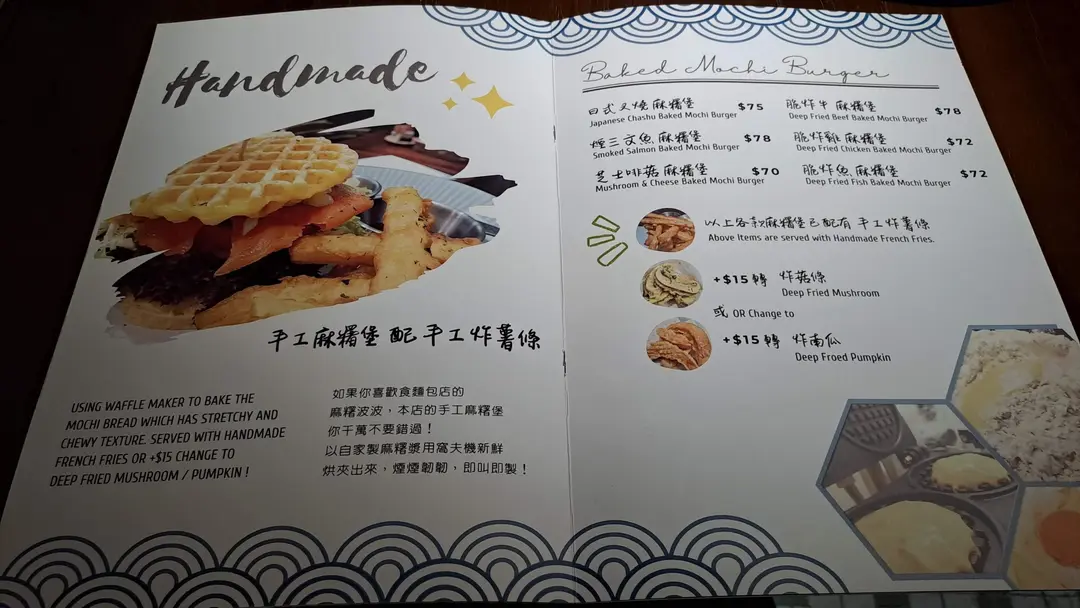 Handmade
手工麻糬堡 配 手工炸薯條
USING WAFFLE MAKER TO BAKE THE
MOCHI BREAD WHICH HAS STRETCHY AND
CHEWY TEXTURE. SERVED WITH HANDMADE
FRENCH FRIES OR +$15 CHANGE TO
DEEP FRIED MUSHROOM / PUMPKIN !
如果你喜歡食麵包店的
麻糬波波，本店的手工麻糬堡
你千萬不要錯過！
以自家製麻糬漿用窩夫機新鮮
烘夾出來，煙煙韌韌，即叫即製！
Baked Mochi Burger
日式叉燒麻糬堡 $75
Japanese Chashu Baked Mochi Burger
煙三文魚麻糬堡 $78
Smoked Salmon Baked Mochi Burger
芝士啡菇麻糬堡 $70
Mushroom & Cheese Baked Mochi Burger
脆炸牛麻糬堡 $78
Deep Fried Beef Baked Mochi Burger
脆炸雞麻糬堡 $72
Deep Fried Chicken Baked Mochi Burger
脆炸魚麻糬堡 $72
Deep Fried Fish Baked Mochi Burger
以上各款麻糬堡已配有 手工炸薯條
Above Items are served with Handmade French Fries.
+$15 轉 炸菇條
Deep Fried Mushroom
或 OR Change to
+$15 轉 炸南瓜
Deep Froed Pumpkin